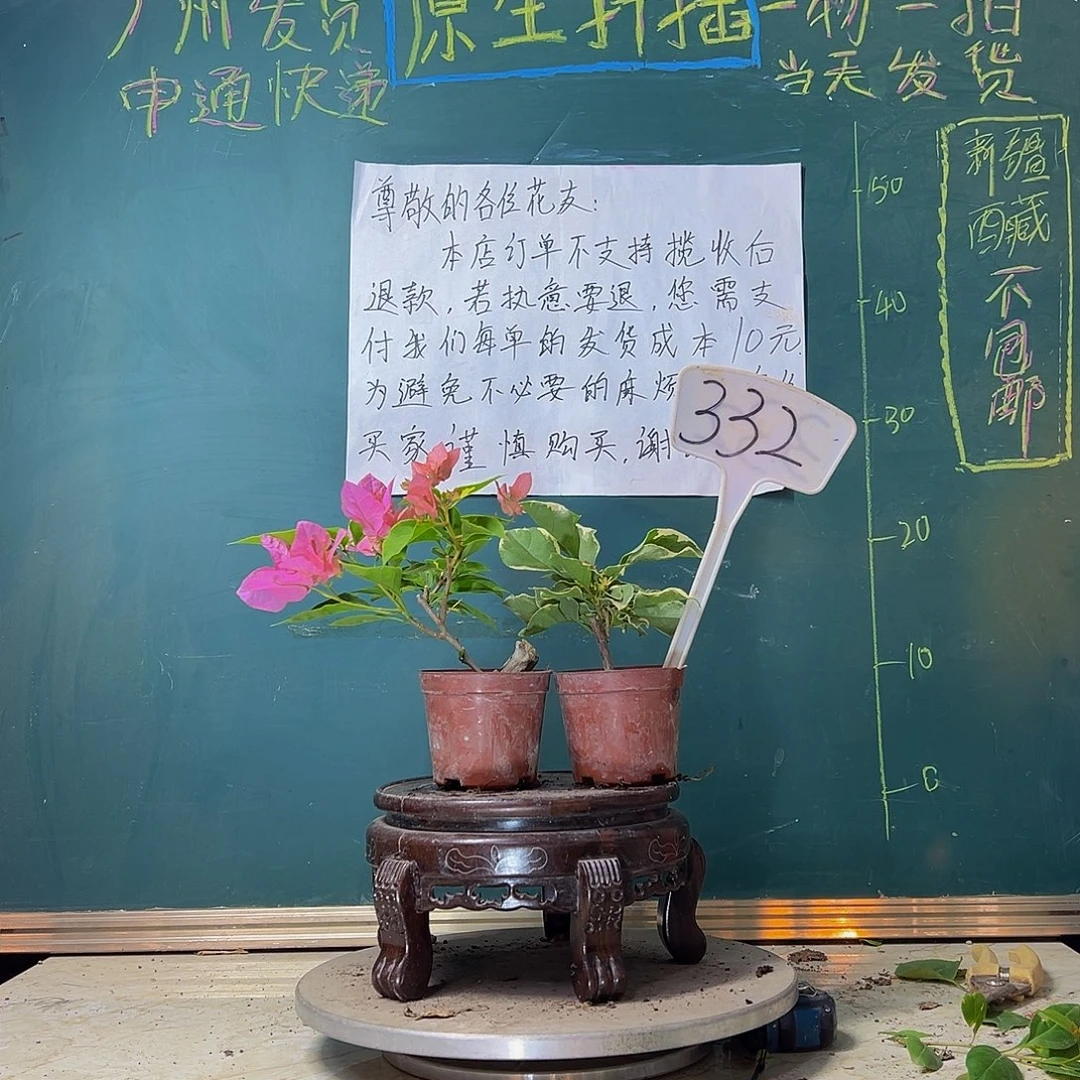 广州发货 原生扦插 一物一拍
申通快递 当天发货
尊敬的各位花友:
本店订单不支持揽收后
退款,若执意要退,您需支
付我们每单的发货成本10元.
为避免不必要的麻烦
买家谨慎购买,谢
332
50
40
30
20
10
0
新疆
西藏
不
包
邮